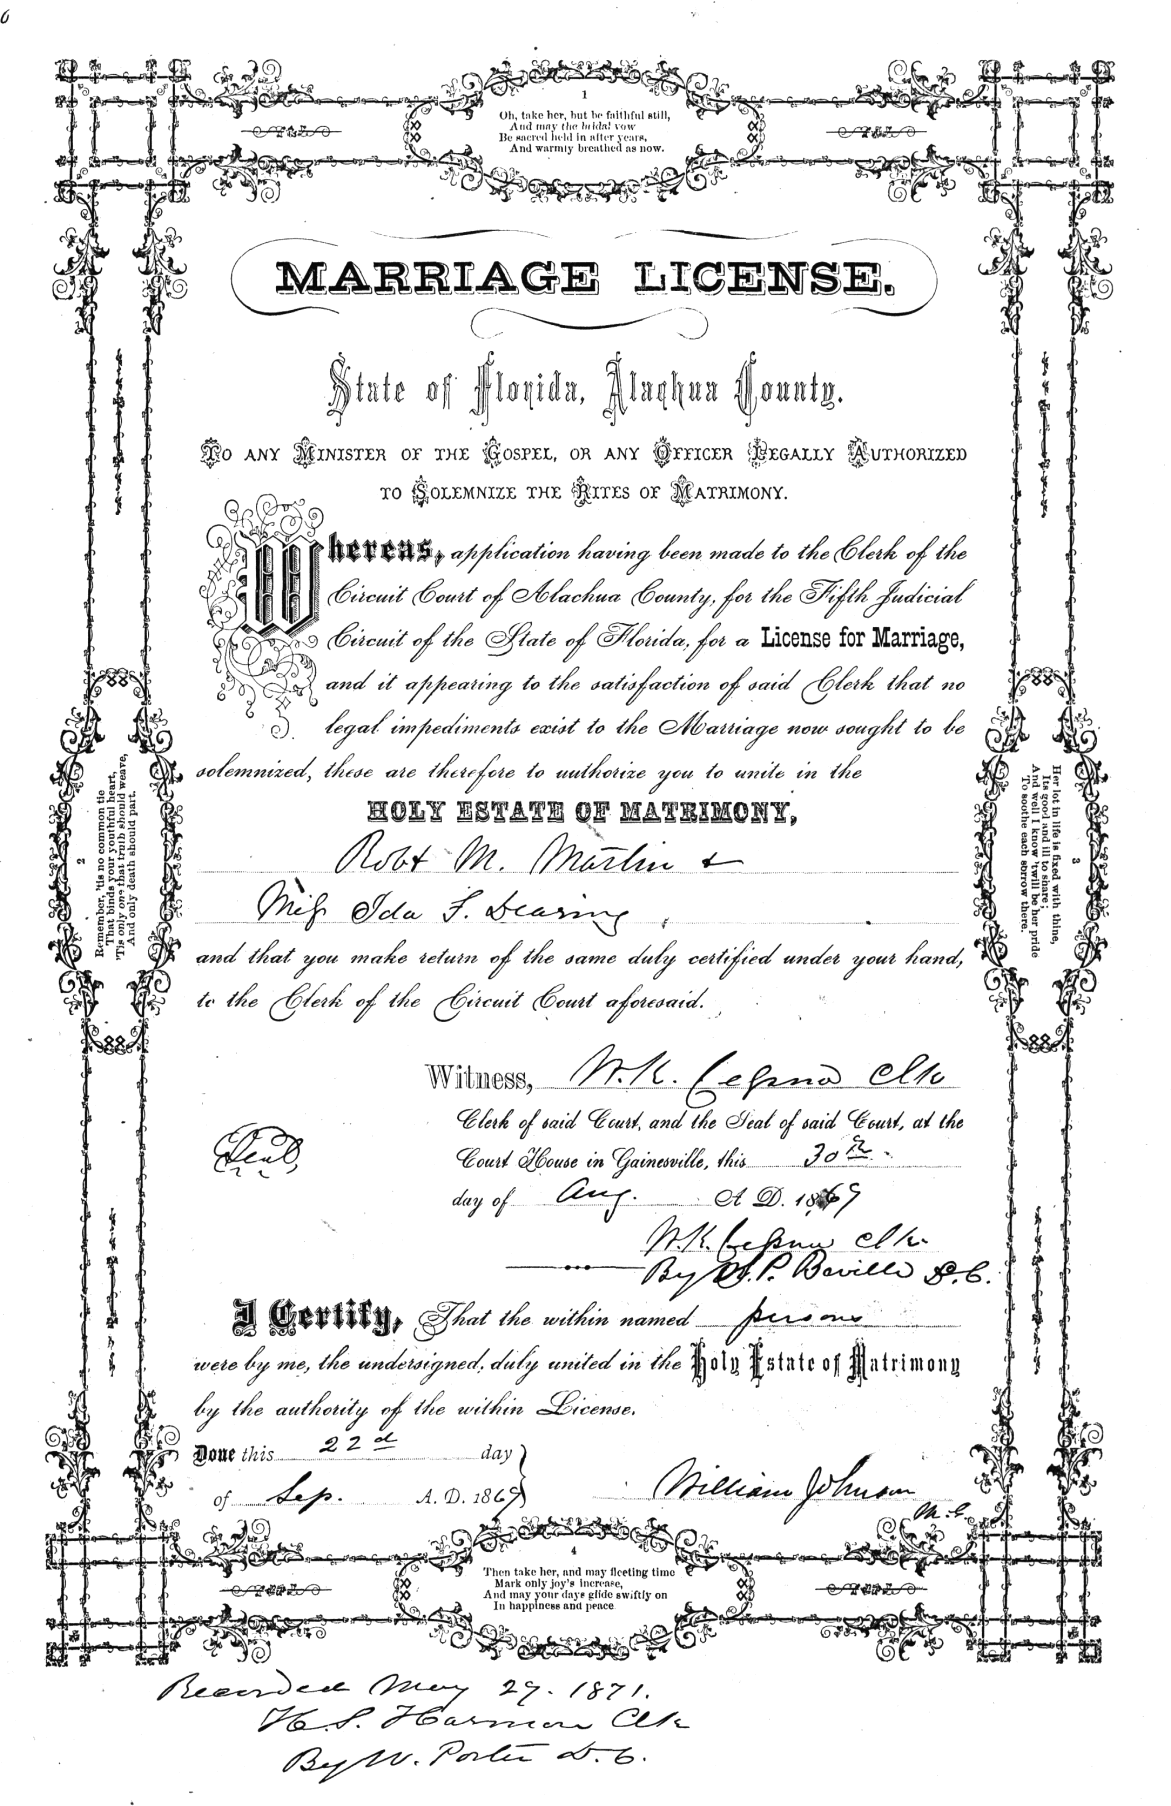 1
Oh, take her, but be faithful still,
And may the bridal vow
Be sacred held in after years,
And warmly breathed as now.
MARRIAGE LICENSE.
State of Florida, Alachua County.
TO ANY MINISTER OF THE GOSPEL, OR ANY OFFICER LEGALLY AUTHORIZED
TO SOLEMNIZE THE RITES OF MATRIMONY.
Whereas, application having been made to the Clerk of the
Circuit Court of Alachua County, for the Fifth Judicial
Circuit of the State of Florida, for a License for Marriage,
and it appearing to the satisfaction of said Clerk that no
legal impediments exist to the Marriage now sought to be
solemnized, these are therefore to authorize you to unite in the
HOLY ESTATE OF MATRIMONY,
Robt M. Martin &
Miss Ida F. Dearing,
and that you make return of the same duly certified under your hand,
to the Clerk of the Circuit Court aforesaid.
Witness, W. K. Cessna Clk
Clerk of said Court, and the Seal of said Court, at the
Seal,
Court House in Gainesville, this 30th
day of Aug. A D. 1869
W. K. Cessna Clk.
By P. Beville D.C.
I Certify, That the within named persons
were by me, the undersigned, duly united in the Holy Estate of Matrimony
by the authority of the within License.
Done this 22d day
of Sep. A. D. 1869
William Johnson
M.G.
2
Remember, 'tis no common tie
That binds your youthful heart,
'Tis only one that truth should weave,
And only death should part.
3
Her lot in life is fixed with thine,
Its good and ill to share;
And well I know 'twill be her pride
To soothe each sorrow there.
4
Then take her, and may fleeting time
Mark only joy's increase,
And may your days glide swiftly on
In happiness and peace
Recorded May 29. 1871.
H. S. Harmon Clk
By W. Porter D.C.